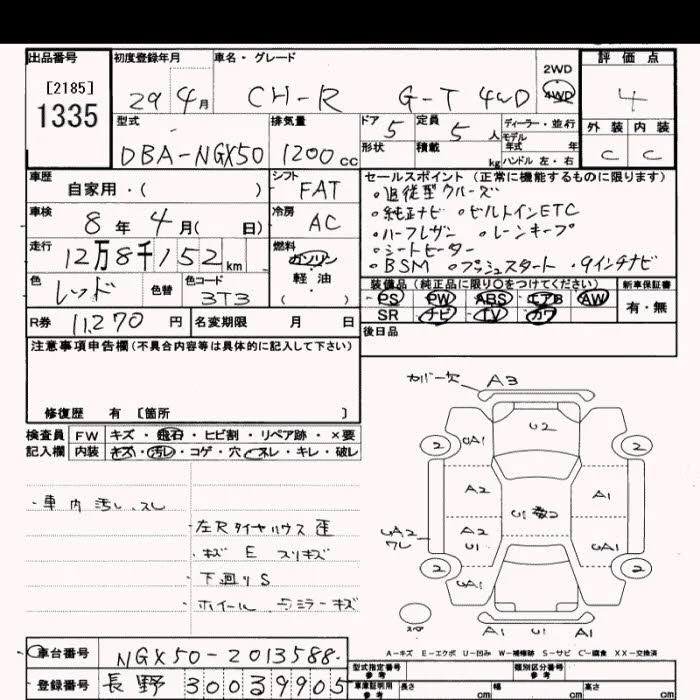 出品番号 初度登録年月 車名・グレード 2WD 4WD 評価点
[2185]
1335
29年 4月 CH-R G-T 4WD 4
型式 排気量 ドア 定員 ディーラー・並行 外装 内装
5 5人 モデル年式 年
DBA-NGX50 1200cc 形状 積載 kg ハンドル 左・右 C C
車歴 シフト セールスポイント(正常に機能するものに限ります)
自家用・( ) FAT 。追従型クルーズ
車検 冷房 。純正ナビ 。ビルトインETC
8年 4月( 日) AC 。ハーフレザー 。レーンキープ
走行 燃料 。シートヒーター
12万8千152km ガソリン 。BSM 。プッシュスタート 。9インチナビ
色 色替 色コード 軽油 装備品(純正品に限り○をつけてください) 新車保証書
レッド 3T3 ( ) PS PW ABS エアB AW 有・無
R券 11,270円 名変期限 月 日 SR ナビ TV カワ
後日品
注意事項申告欄(不具合内容等は具体的に記入して下さい)
修復歴 有 [箇所 ]
検査員 FW キズ・飛石・ヒビ割・リペア跡・×要
記入欄 内装 キズ・汚レ・コゲ・穴・スレ・キレ・破レ
・車内汚レ、スレ
・左Rタイヤハウス歪
・キズ E スリキズ
・下廻りS
・ホイール ミラーキズ
カバー欠 A3
U2
2 UA1 2
A2 A1
A2 U1
UA2
ワレ
UA1
2 UA1 2
スペ A1 U1 A1
A-キズ E-エクボ U-凹み W-補修跡 S-サビ C-腐食 XX-交換済
車台番号 NGX50-2013588
登録番号 長野 300 3 9905
型式指定番号 参考 類別区分番号 参考
車庫証明用 参考 長さ cm 幅 cm 高さ cm